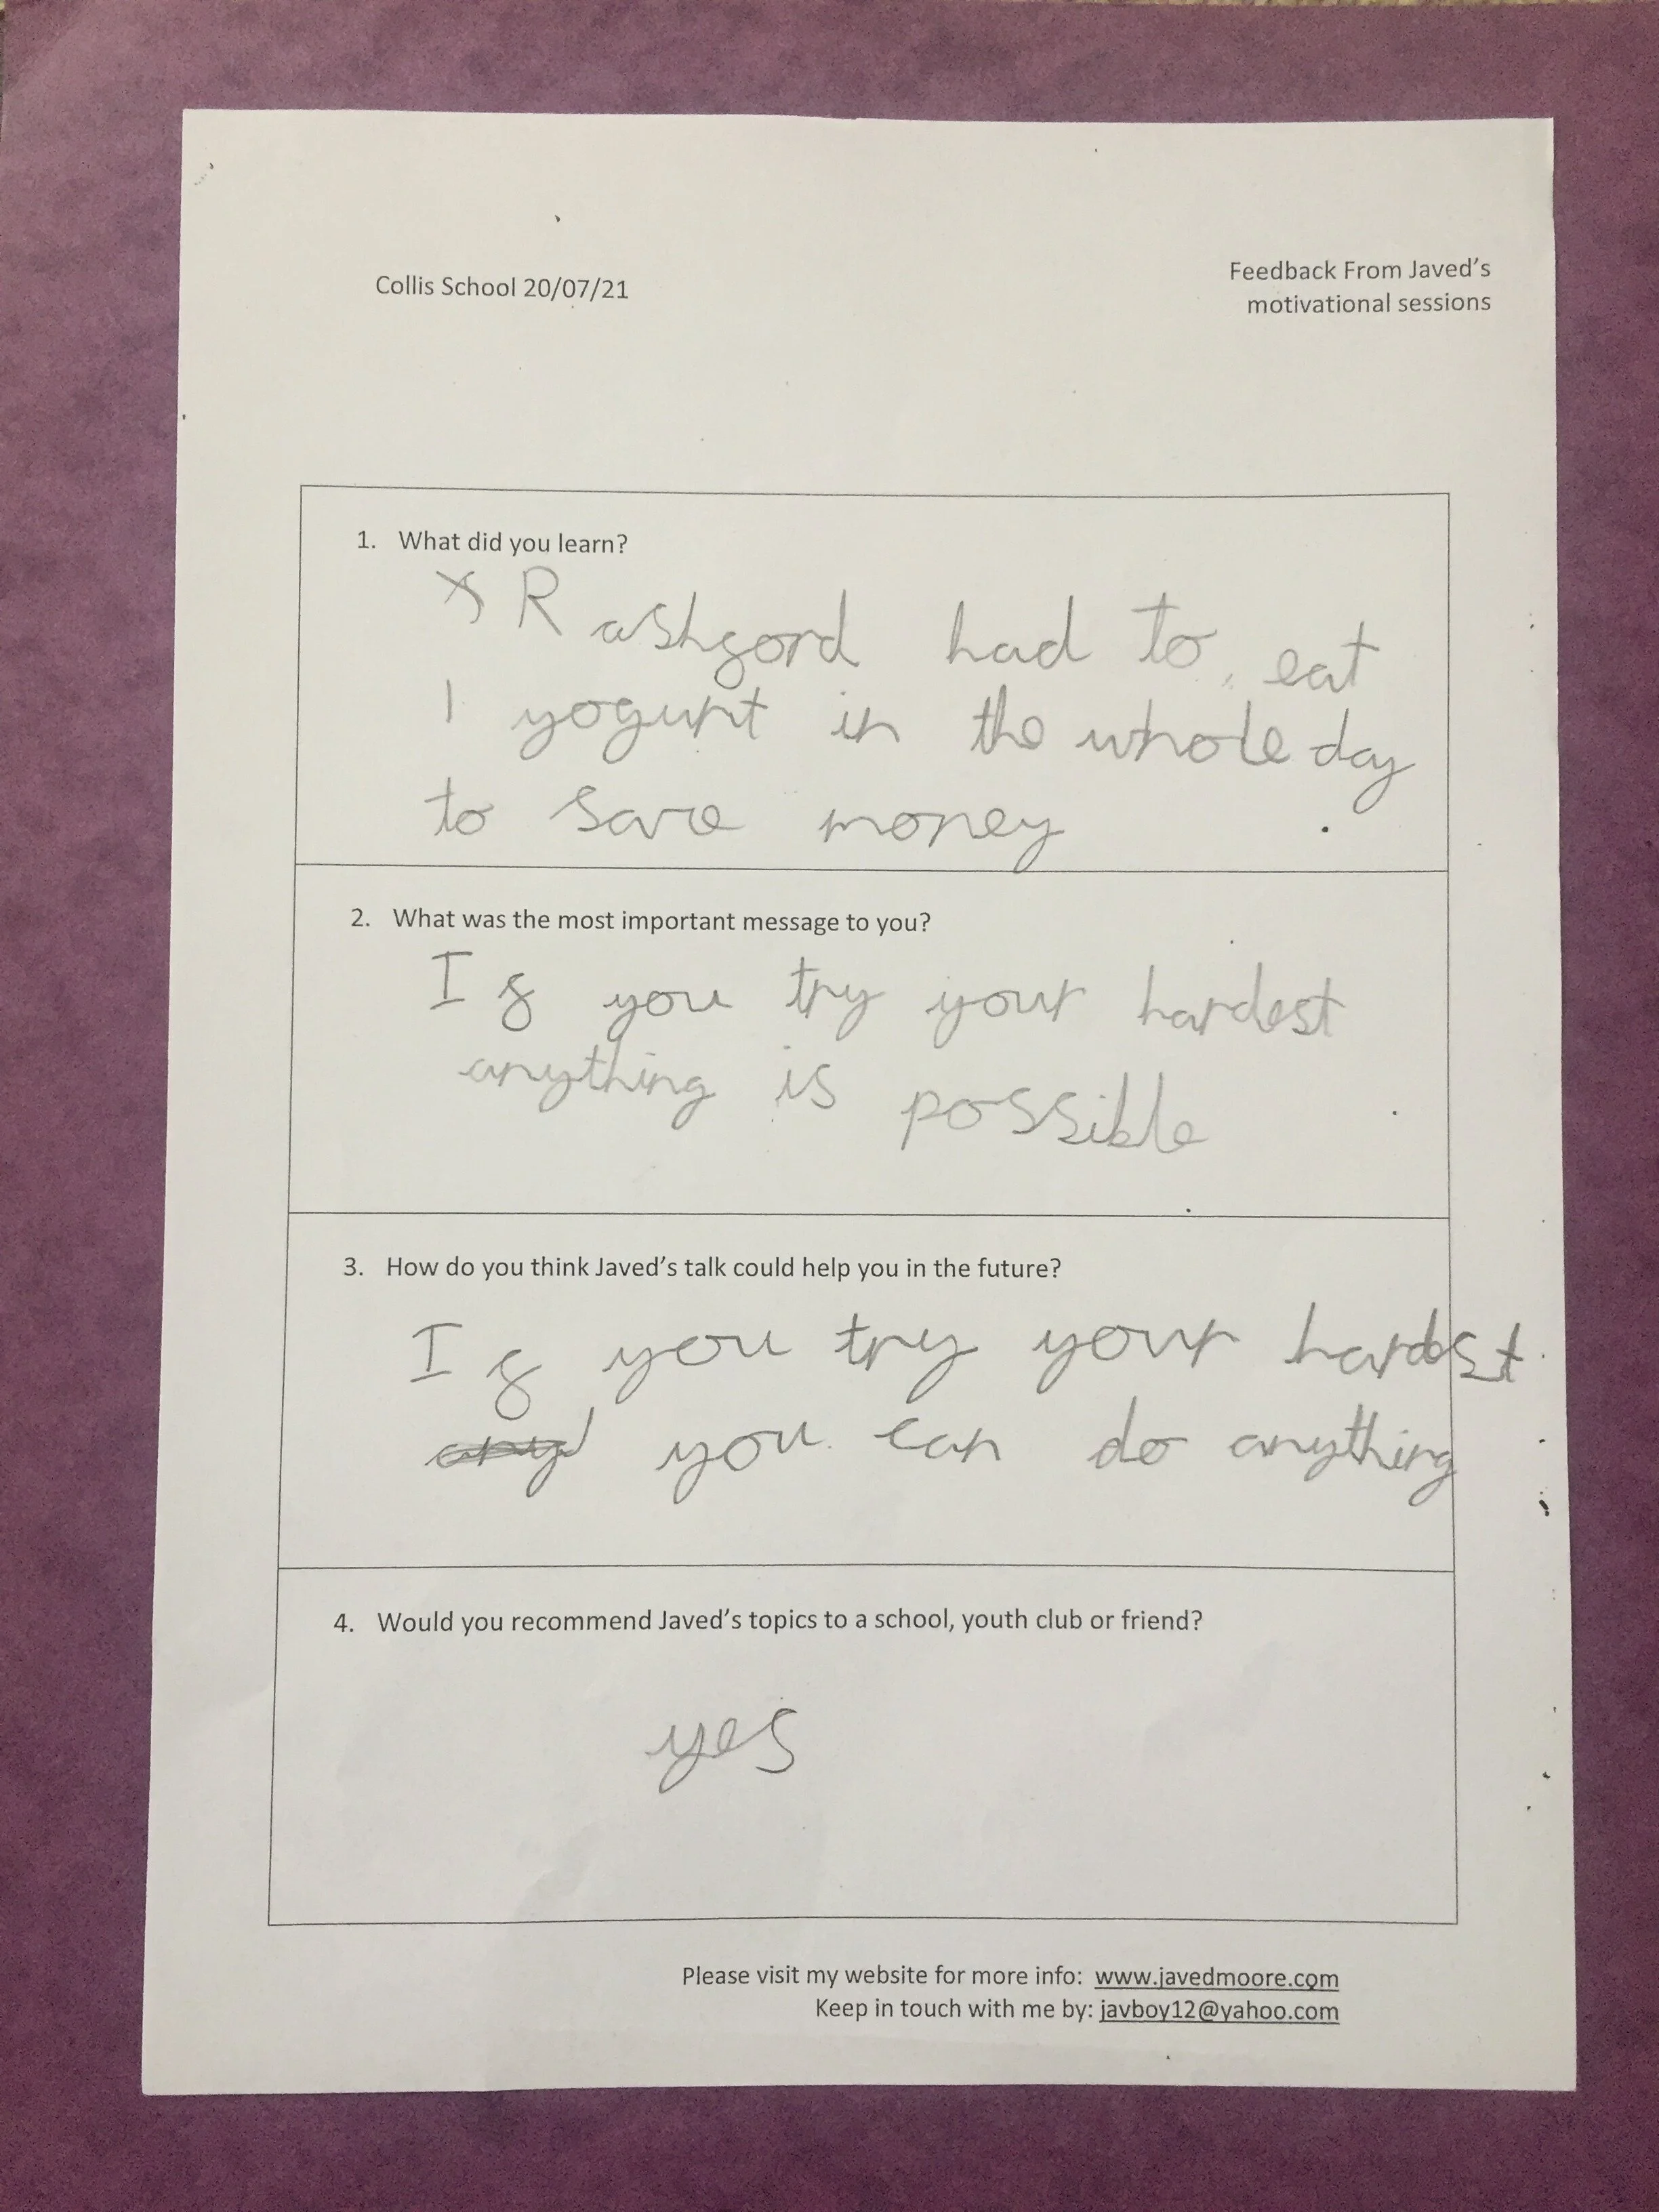 Collis School 20/07/21
Feedback From Javed's
motivational sessions
1. What did you learn?
Rashford had to eat
1 yogurt in the whole day
to save money
2. What was the most important message to you?
If you try your hardest
anything is possible
3. How do you think Javed's talk could help you in the future?
If you try your hardest
you can do anything
4. Would you recommend Javed's topics to a school, youth club or friend?
yes
Please visit my website for more info: www.javedmoore.com
Keep in touch with me by: javboy12@yahoo.com